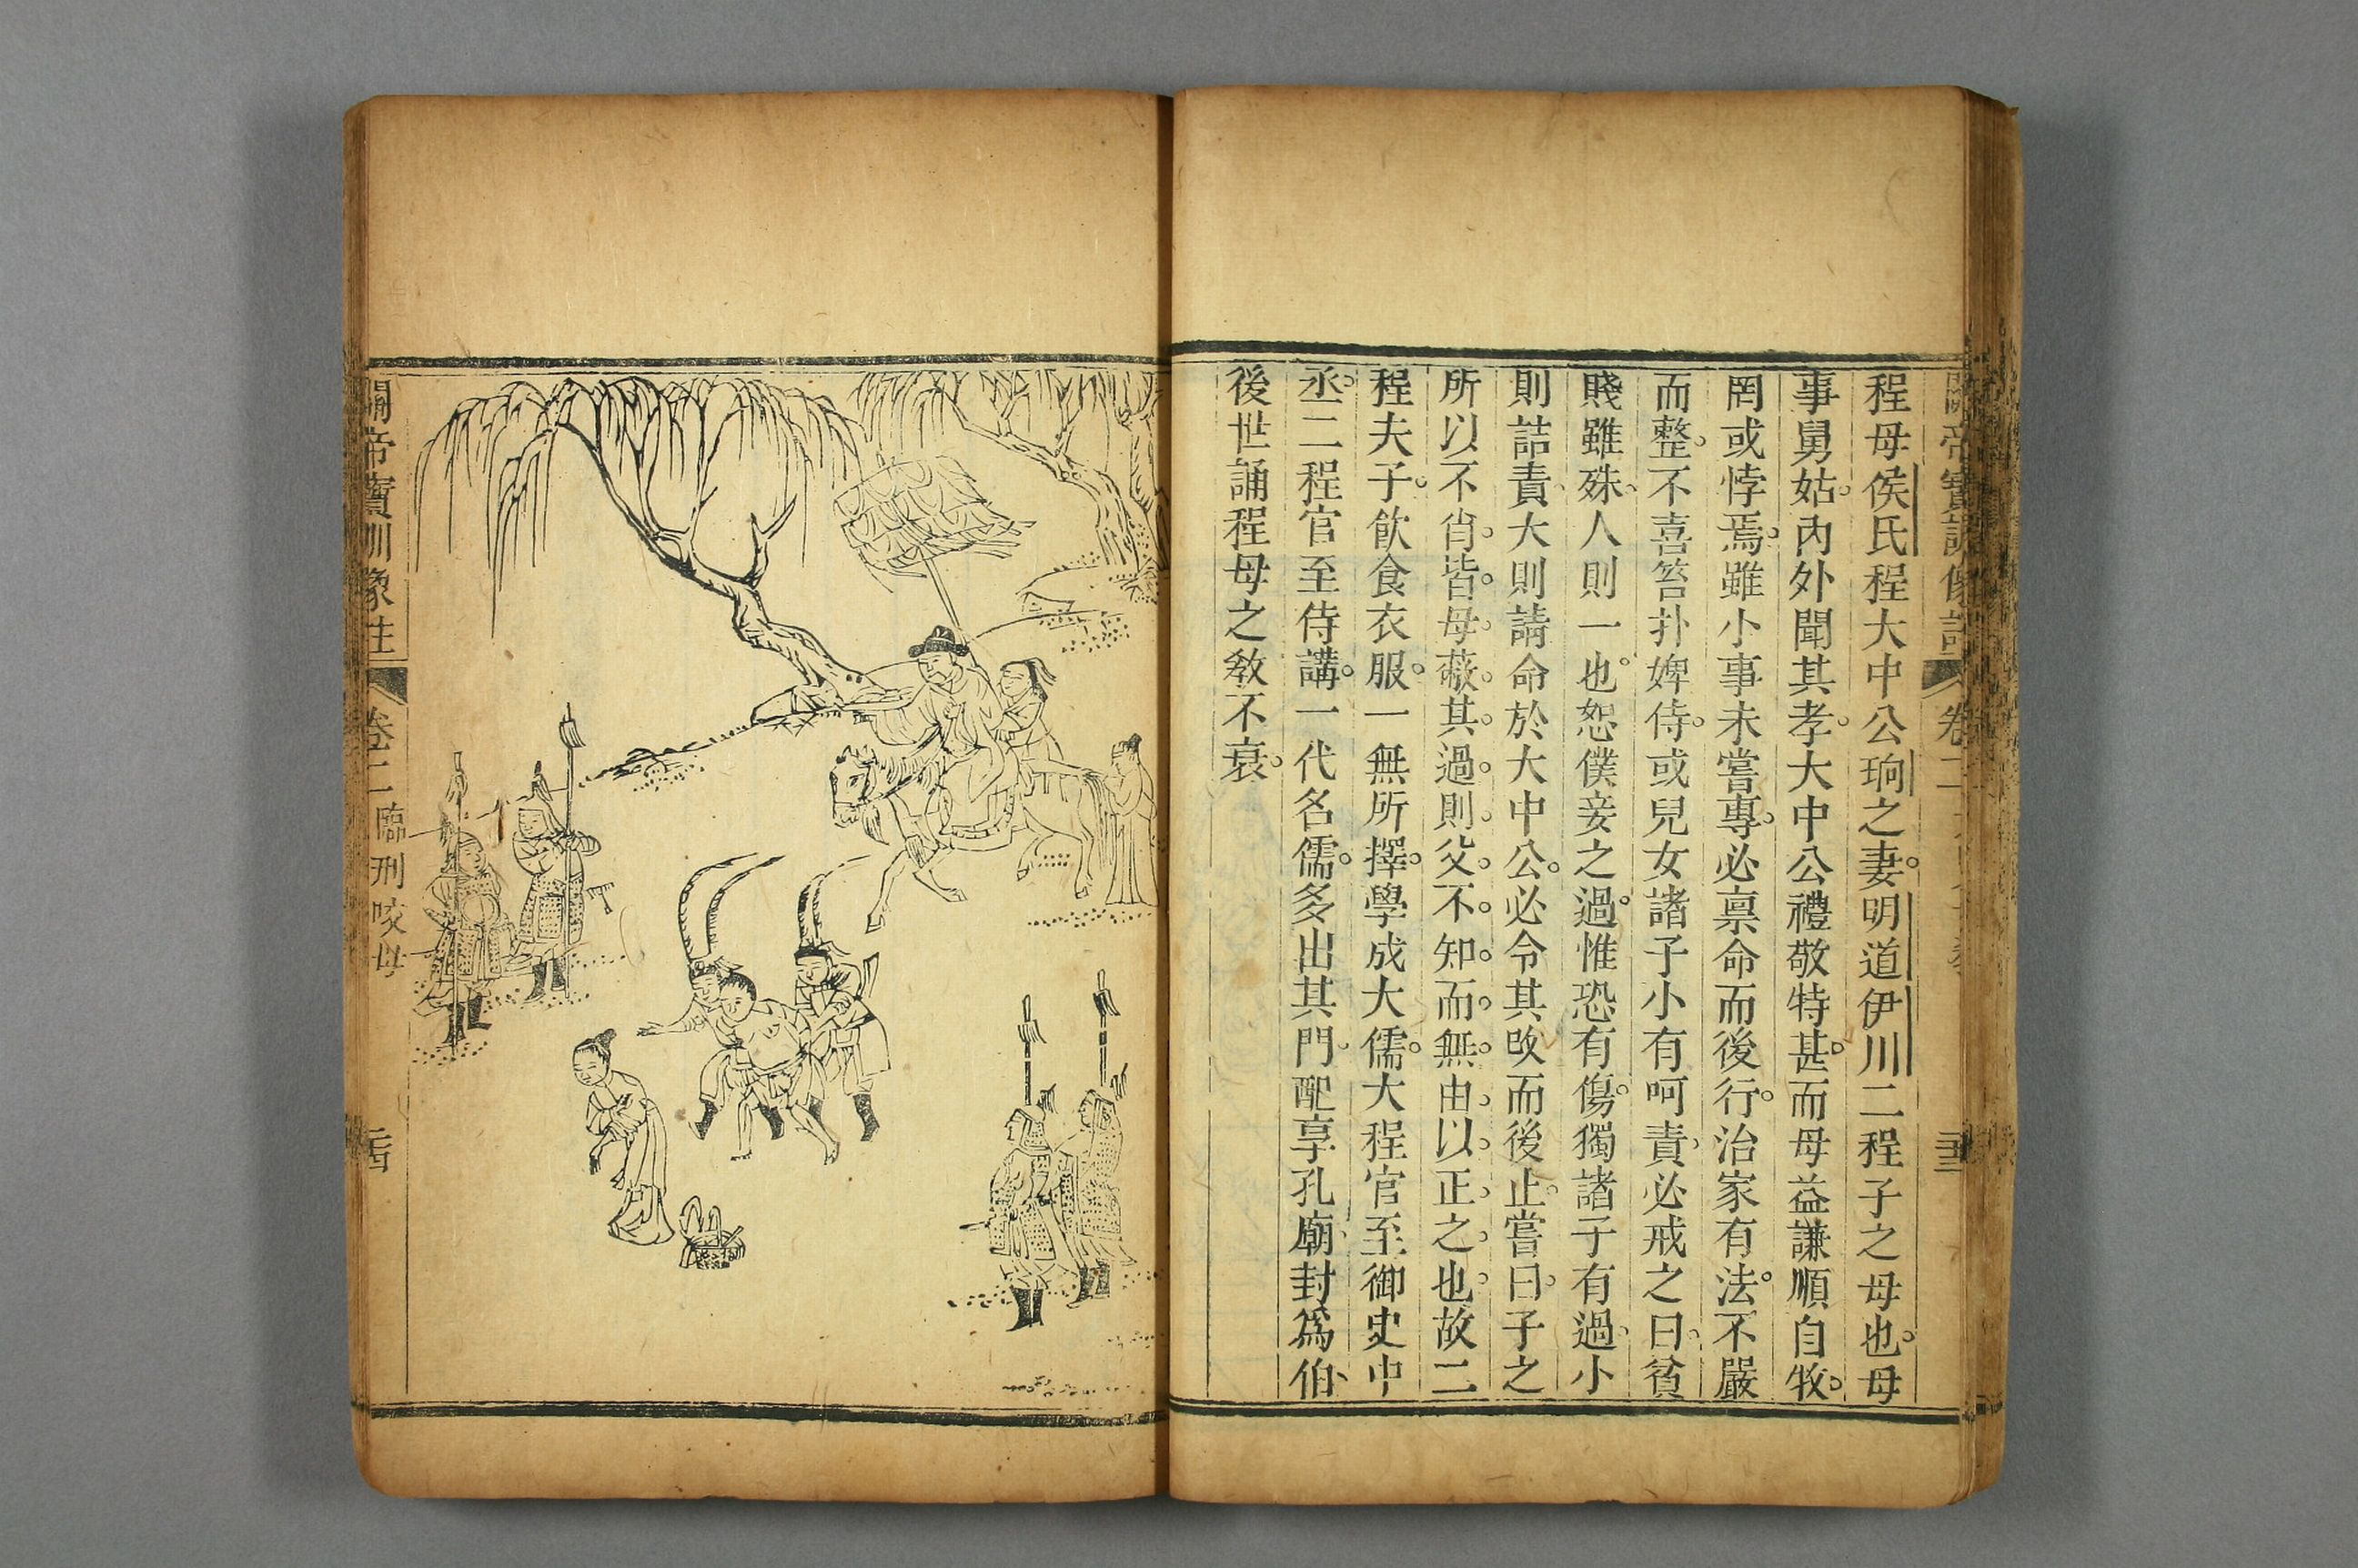 程母侯氏程大中公珦之妻明道伊川二程子之母也母
事舅姑內外聞其孝大中公禮敬特甚而母益謙順自牧
罔或悖焉雖小事未嘗專必禀命而後行治家有法不嚴
而整不喜笞扑婢侍或兒女諸子小有呵責必戒之曰貧
賤雖殊人則一也恕僕妾之過惟恐有傷獨諸子有過小
則詰責大則請命於大中公必令其改而後止嘗曰子之
所以不肖皆母蔽其過則父不知而無由以正之也故二
程夫子飲食衣服一無所擇學成大儒大程官至御史中
丞二程官至侍講一代名儒多出其門配享孔廟封爲伯
後世誦程母之敎不衰
關帝寶訓像註
卷二
臨刑咬母